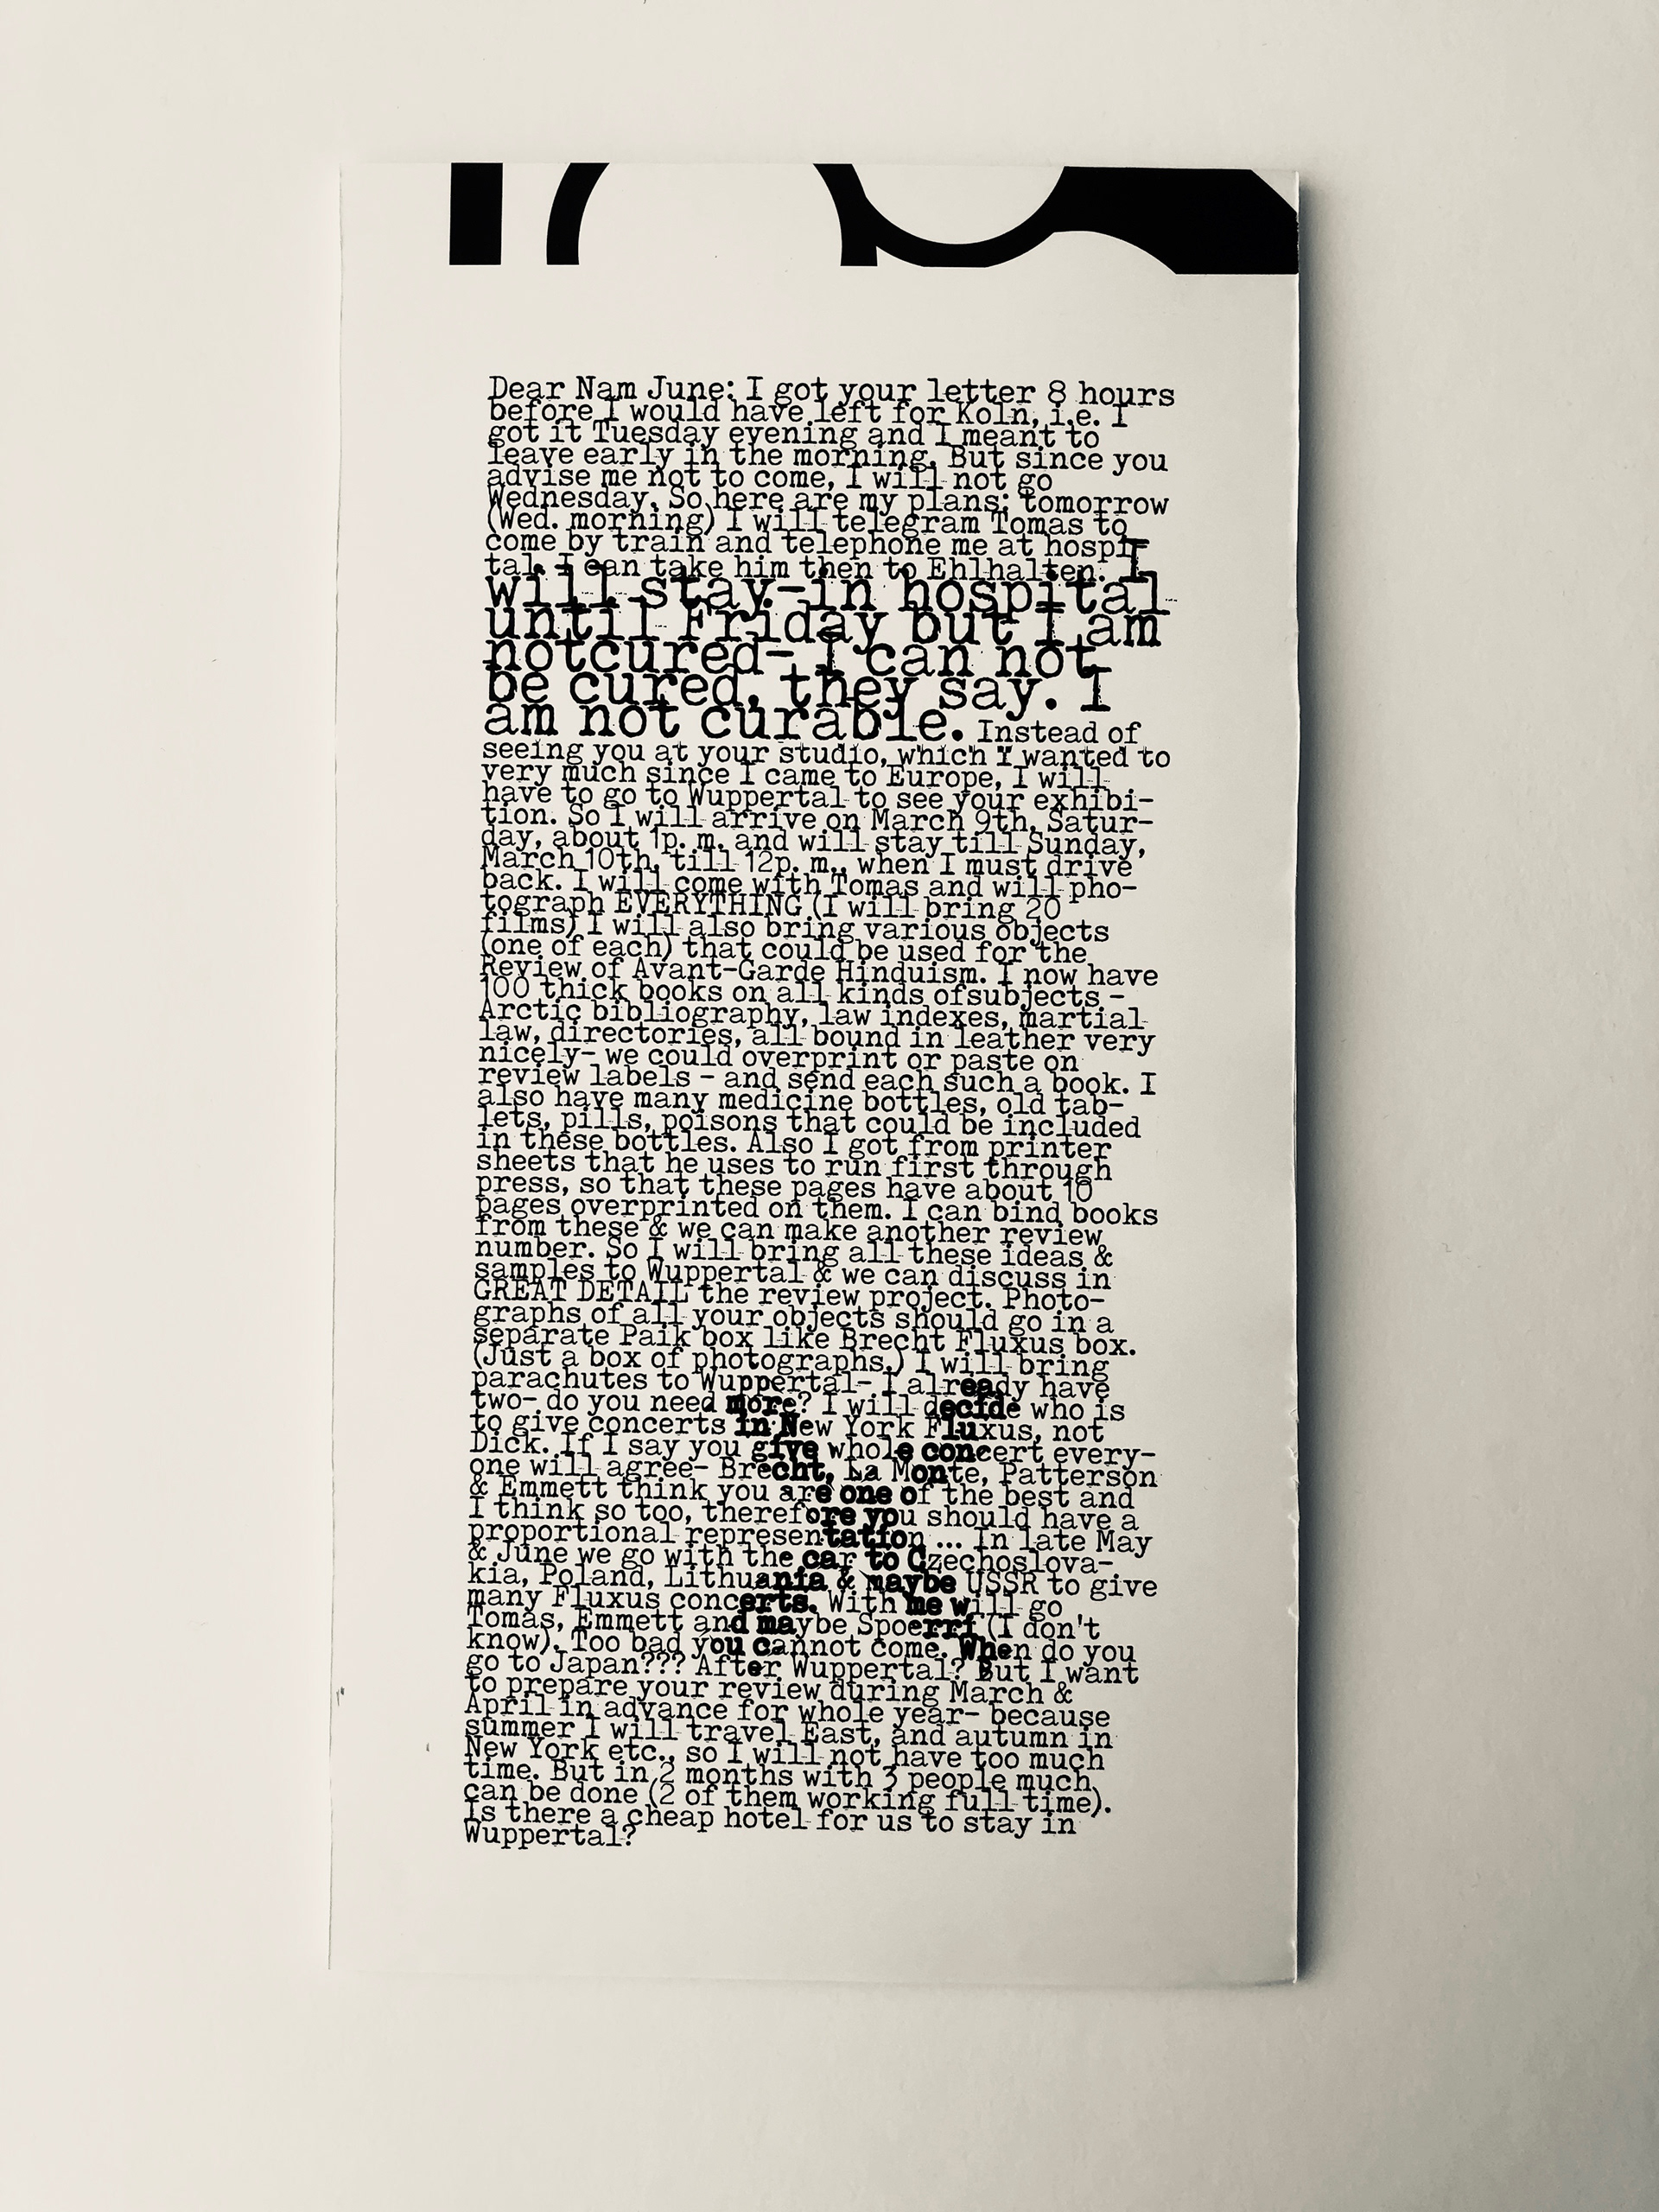 Dear Nam June: I got your letter 8 hours
before I would have left for Koln, i.e. I
got it Tuesday evening and I meant to
leave early in the morning. But since you
advise me not to come, I will not go
Wednesday. So here are my plans: tomorrow
(Wed. morning) I will telegram Tomas to
come by train and telephone me at hospi
tal. I can take him then to Ehlhalten. I
will stay-in hospital
until Friday but I am
notcured- I can not
be cured, they say. I
am not curable. Instead of
seeing you at your studio, which I wanted to
very much since I came to Europe, I will
have to go to Wuppertal to see your exhibi-
tion. So I will arrive on March 9th, Satur-
day, about 1p. m. and will stay till Sunday,
March 10th, till 12p. m., when I must drive
back. I will come with Tomas and will pho-
tograph EVERYTHING (I will bring 20
films) I will also bring various objects
(one of each) that could be used for the
Review of Avant-Garde Hinduism. I now have
100 thick books on all kinds ofsubjects -
Arctic bibliography, law indexes, martial
law, directories, all bound in leather very
nicely- we could overprint or paste on
review labels - and send each such a book. I
also have many medicine bottles, old tab-
lets, pills, poisons that could be included
in these bottles. Also I got from printer
sheets that he uses to run first through
press, so that these pages have about 10
pages overprinted on them. I can bind books
from these & we can make another review
number. So I will bring all these ideas &
samples to Wuppertal & we can discuss in
GREAT DETAIL the review project. Photo-
graphs of all your objects should go in a
separate Paik box like Brecht Fluxus box.
(Just a box of photographs.) I will bring
parachutes to Wuppertal- I already have
two- do you need more? I will decide who is
to give concerts in New York Fluxus, not
Dick. If I say you give whole concert every-
one will agree- Brecht, La Monte, Patterson
& Emmett think you are one of the best and
I think so too, therefore you should have a
proportional representation ... In late May
& June we go with the car to Czechoslova-
kia, Poland, Lithuania & maybe USSR to give
many Fluxus concerts. With me will go
Tomas, Emmett and maybe Spoerri (I don't
know). Too bad you cannot come. When do you
go to Japan??? After Wuppertal? But I want
to prepare your review during March &
April in advance for whole year- because
summer I will travel East, and autumn in
New York etc., so I will not have too much
time. But in 2 months with 3 people much
can be done (2 of them working full time).
Is there a cheap hotel for us to stay in
Wuppertal?